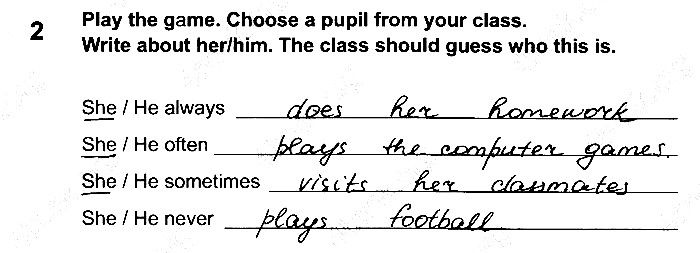 2 Play the game. Choose a pupil from your class.
Write about her/him. The class should guess who this is.
She / He always does her homework
She / He often plays the computer games.
She / He sometimes visits her classmates
She / He never plays football